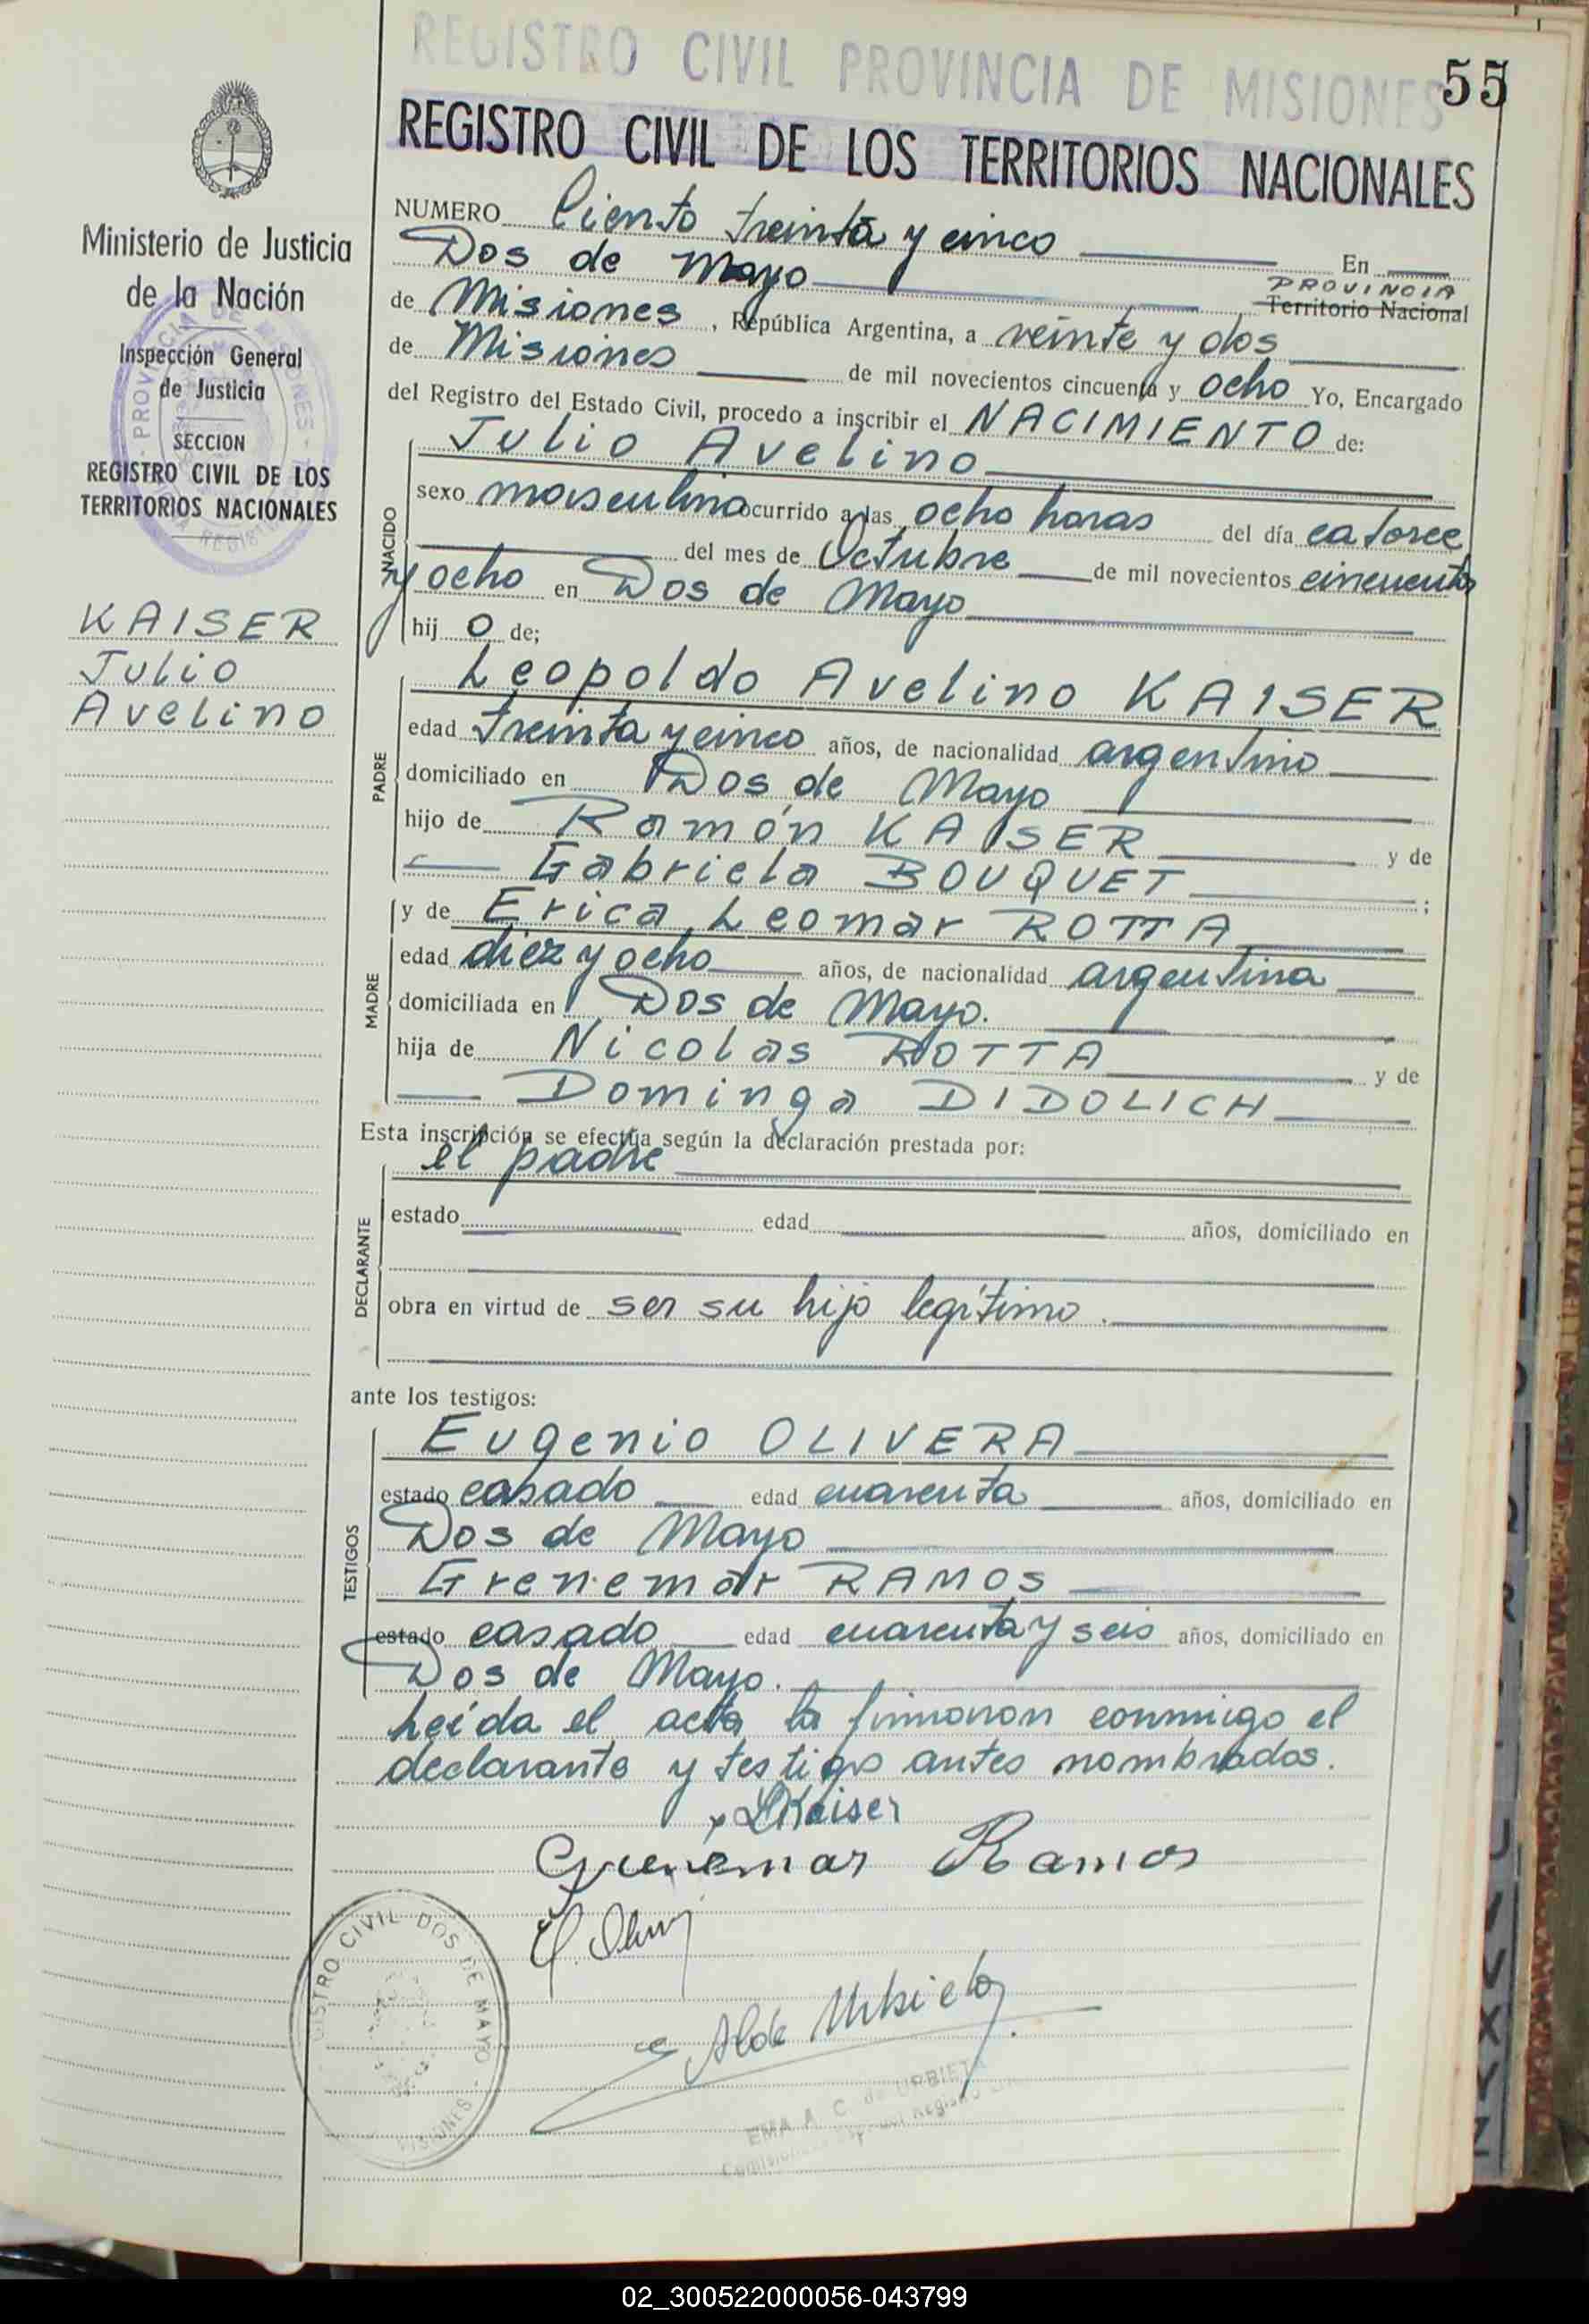 REGISTRO CIVIL PROVINCIA DE MISIONES
55
REGISTRO CIVIL DE LOS TERRITORIOS NACIONALES
Ministerio de Justicia
de la Nación
Inspección General
de Justicia
SECCION
REGISTRO CIVIL DE LOS
TERRITORIOS NACIONALES
KAISER
Julio
Avelino
NUMERO Ciento treinta y cinco En
Dos de Mayo PROVINCIA
Territorio Nacional
de Misiones, República Argentina, a veinte y dos
de Misiones de mil novecientos cincuenta y ocho Yo, Encargado
del Registro del Estado Civil, procedo a inscribir el NACIMIENTO de:
NACIDO
Julio Avelino
sexo masculino ocurrido a las ocho horas del día catorce
del mes de Octubre de mil novecientos cincuenta
y ocho en Dos de Mayo
hijo de;
PADRE
Leopoldo Avelino KAISER
edad treinta y cinco años, de nacionalidad argentino
domiciliado en Dos de Mayo
hijo de Ramón KAISER y de
Gabriela BOUQUET;
MADRE
y de Erica Leomar ROTTA
edad diez y ocho años, de nacionalidad argentina
domiciliada en Dos de Mayo.
hija de Nicolas ROTTA y de
Dominga DIDOLICH
Esta inscripción se efectúa según la declaración prestada por:
DECLARANTE
el padre
estado edad años, domiciliado en
obra en virtud de ser su hijo legítimo.
ante los testigos:
TESTIGOS
Eugenio OLIVERA
estado casado edad cuarenta años, domiciliado en
Dos de Mayo
Grenemar RAMOS
estado casado edad cuarenta y seis años, domiciliado en
Dos de Mayo.
Leída el acta la firmaron conmigo el
declarante y testigo antes nombrados.
LKaiser
Grenemar Ramos
REGISTRO CIVIL DOS DE MAYO - MISIONES
EMA A. C. de URBIETA
02_300522000056-043799